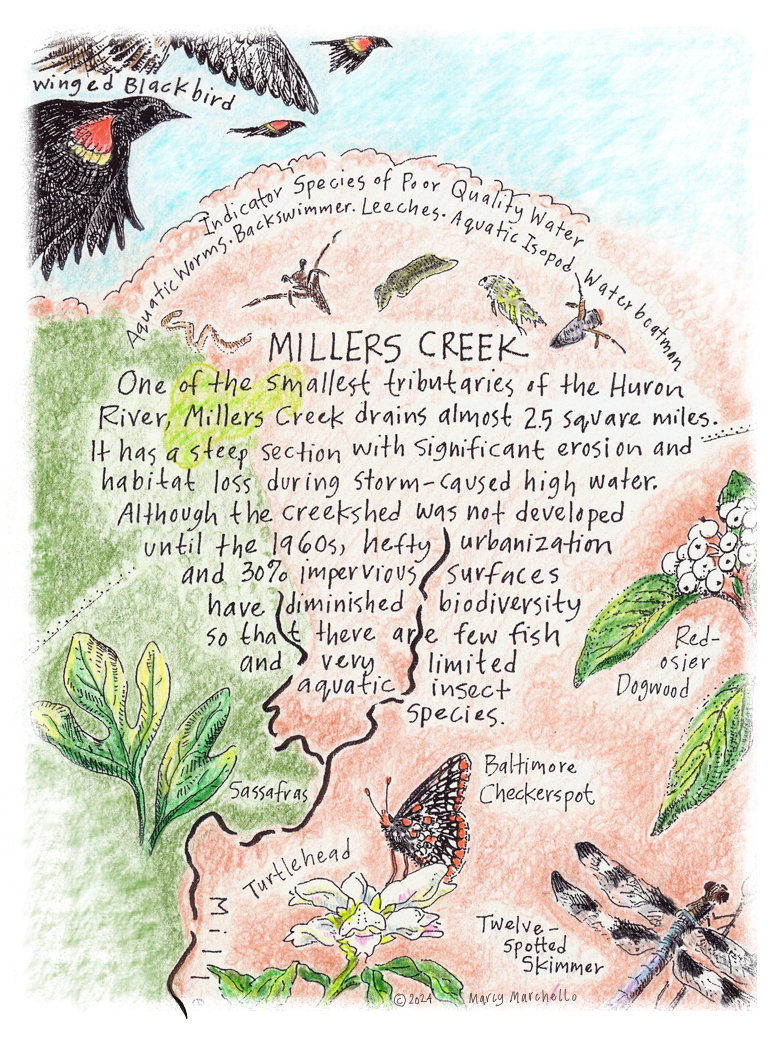 winged Blackbird
Indicator Species of Poor Quality Water
Aquatic Worms · Backswimmer · Leeches · Aquatic Isopod Waterboatman
MILLERS CREEK
One of the smallest tributaries of the Huron
River, Millers Creek drains almost 2.5 square miles.
It has a steep section with significant erosion and
habitat loss during storm-caused high water.
Although the creekshed was not developed
until the 1960s, hefty urbanization
and 30% impervious surfaces
have diminished biodiversity
so that there are few fish
and very limited
aquatic insect
species.
Red-
osier
Dogwood
Sassafras
Baltimore
Checkerspot
Turtlehead
Mill
Twelve-
Spotted
Skimmer
© 2024 Marcy Marchello